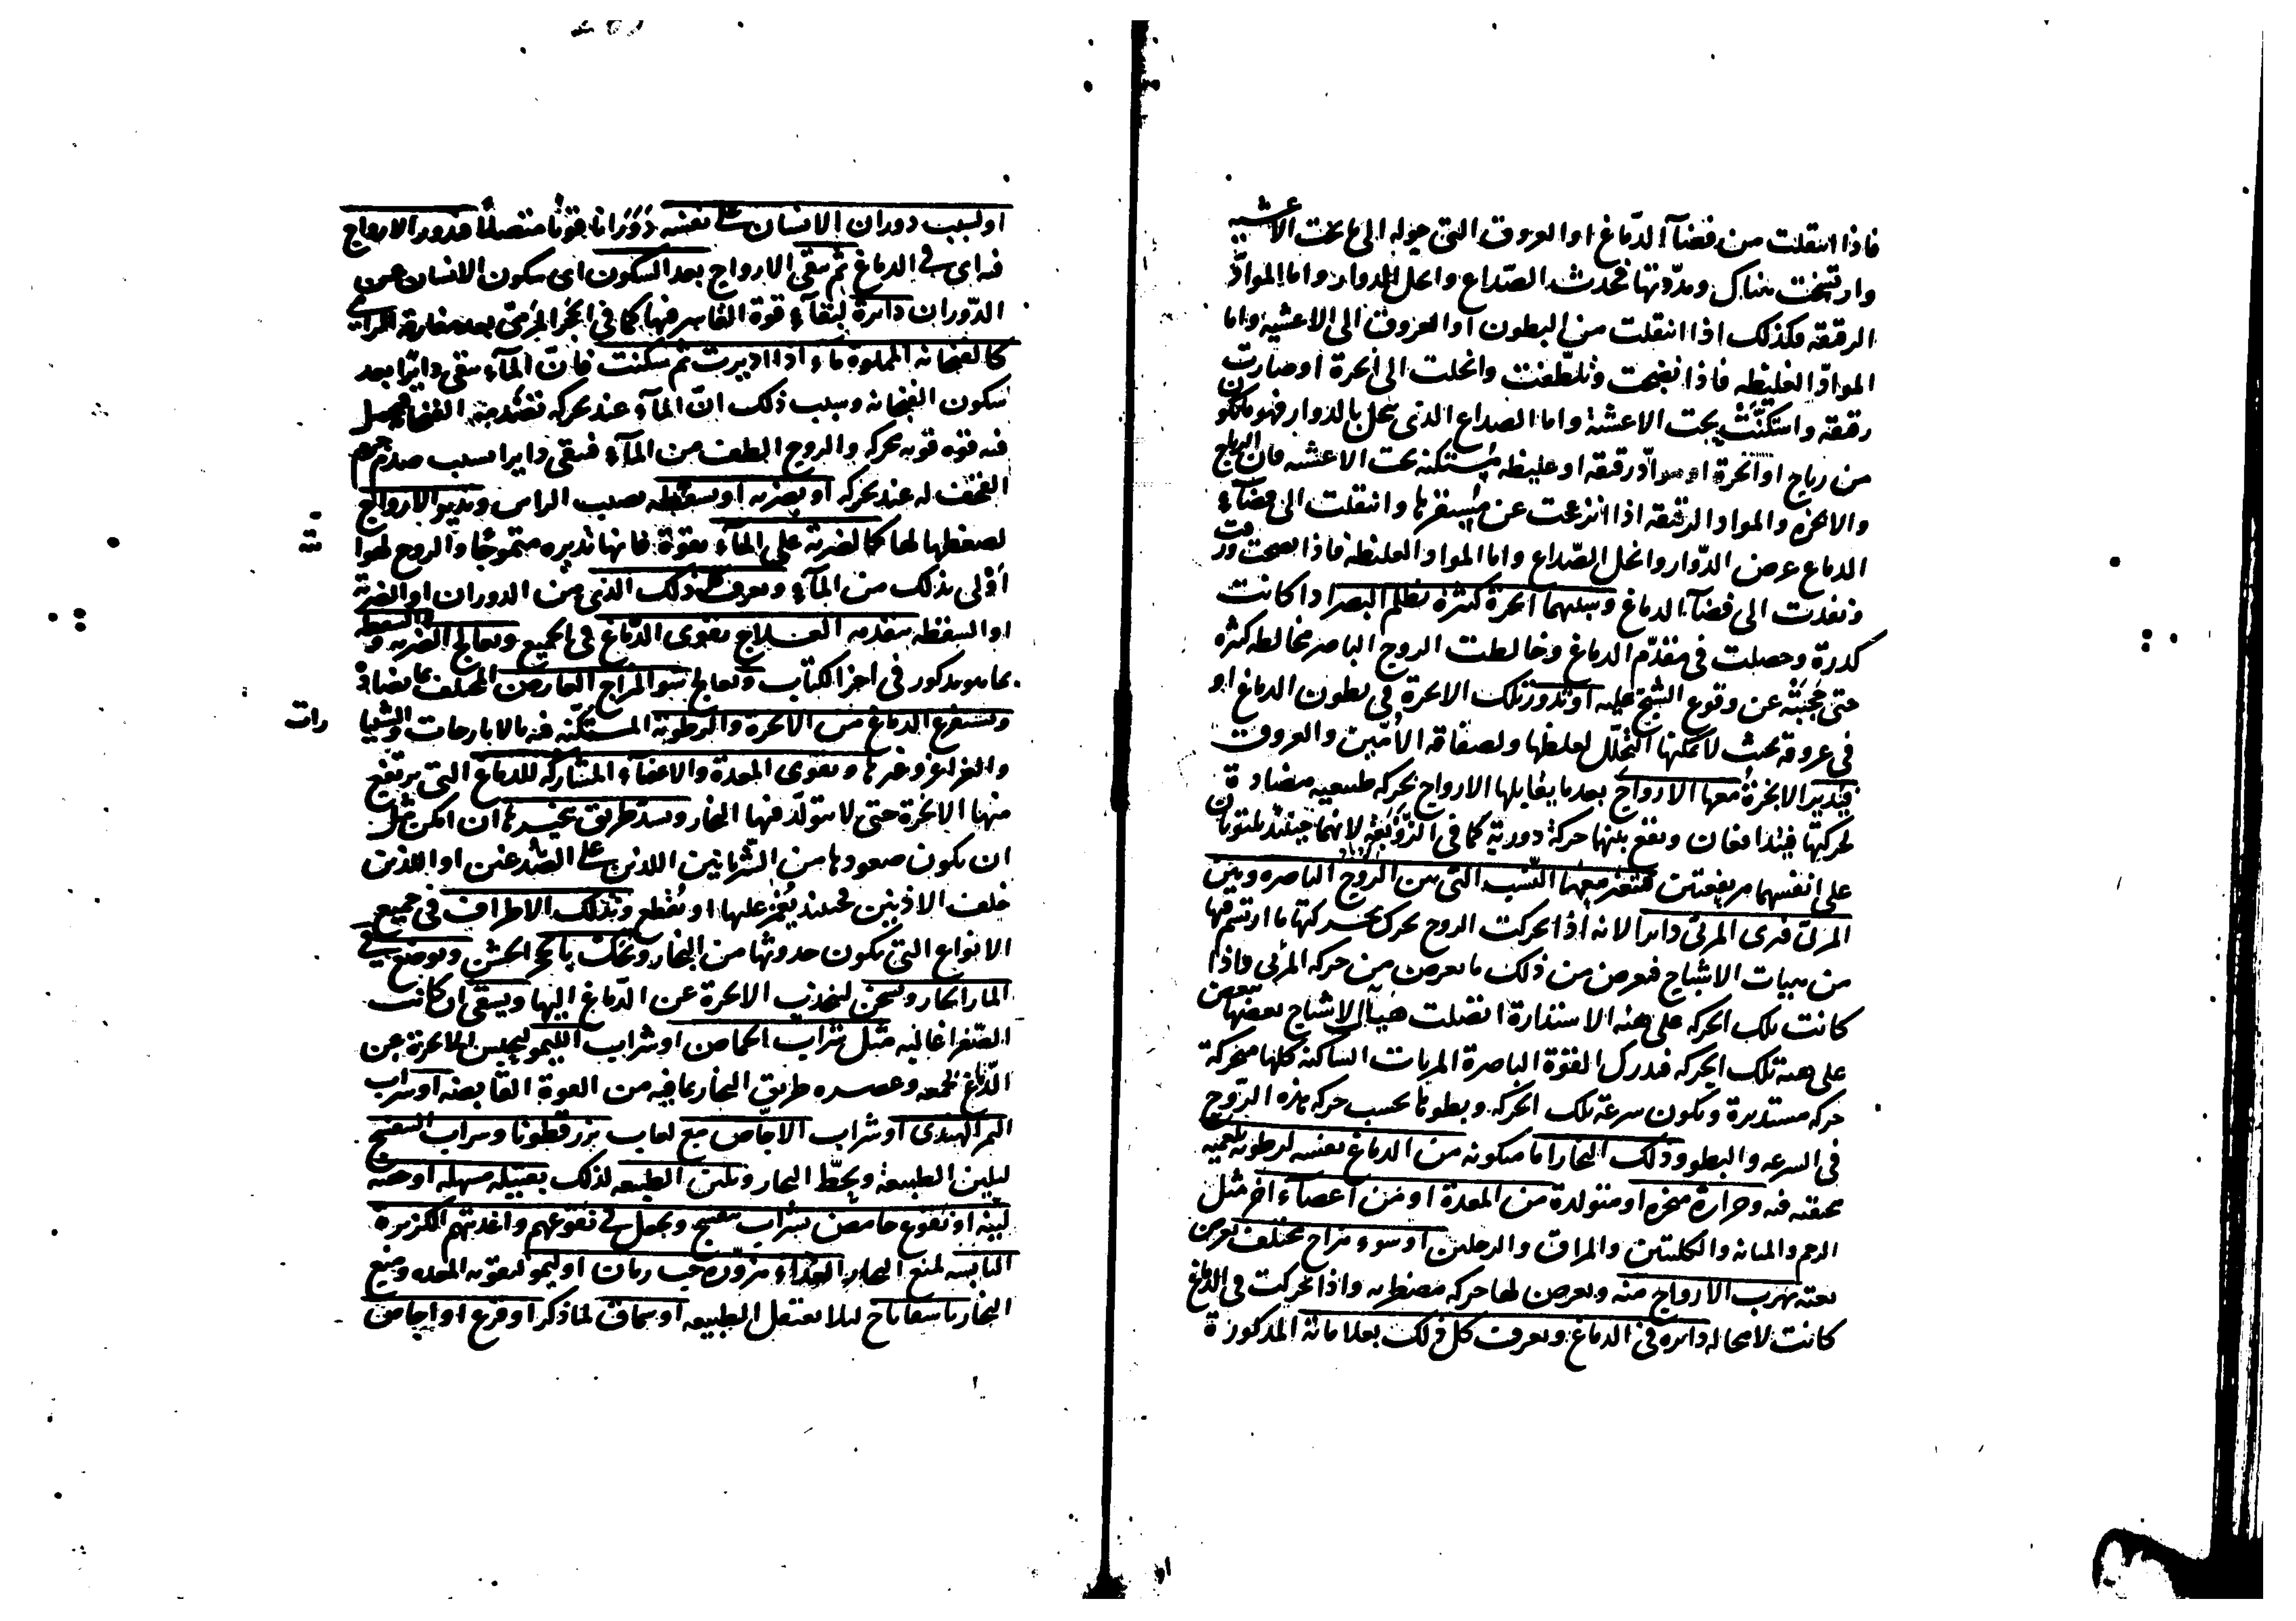 فاذا انتقلت من فضآء الدّماغ او العروق التى حوله الى ما تحت الاغشية
وارتبكت هناك ومدّدتها فحدث الصّداع وانحل الدوار واما الموادّ
الرقيقة فكذلك اذا انتقلت من البطون او العروق الى الاغشية واما
الموادّ الغليظه فاذا نضجت وتلطّفت وانحلت الى ابخرة او صارت
رقيقه واستكنّت تحت الاغشية واما الصداع الذى ينحل بالدوار فهو ما يكون
من رياح او ابخرة او موادّ رقيقه او غليظه مستكنه تحت الاغشيه فان الرياح
والابخره والمواد الرقيقه اذا انزعجت عن مستقرها وانتقلت الى فضآء
الدماغ عرض الدّوار وانحل الصّداع واما المواد الغليظه فاذا نضجت ورقت
ونفذت الى فضآء الدماغ وسببهما ابخرة كثيرة تظلم البصر اذا كانت
كدرة وحصلت فى مقدّم الدماغ وخالطت الروح الباصر مخالطه كثيره
حتى حجبته عن وقوع الشبح عليه او تدور تلك الابخرة فى بطون الدماغ او
فى عروقه بحيث لا يمكنها التحلّل لغلظها ولصفاقه الامّين والعروق
فيدير الابخرة معها الارواح بعد ما يقابلها الارواح بحركه طبيعيه مضادة
لحركتها فيتدافعان ويقع بينها حركة دورية كما فى الزّوبعة لانهما حينئذ يلتويان
على انفسهما مرتفعتين فتتغير معهما النّسب التى بين الروح الباصره وبين
المرئى فيرى المرئى دايرا لانه اذا تحركت الروح تحرك بحركتها ما ارتسم فيها
من هيئات الاشباح فيعرض من ذلك ما يعرض من حركه المرئى فاذا
كانت تلك الحركه على هيئه الاستدارة اتصلت هيأ الاشباح بعضها ببعض
على هيئة تلك الحركه فيدرك القوّة الباصرة المرئيات الساكنه كلها متحركة
حركه مستديرة ويكون سرعة تلك الحركه وبطوءها بحسب حركه هذه الرّوح
فى السرعه والبطو وذلك البخار اما متكونه من الدماغ نفسه لرطوبه بلغميه
محتقنه فيه وحرارة مبخره او متولدة من المعدة او من اعضآء اخر مثل
الرحم والمثانه والكليتين والمراق والرجلين او سوء مزاج مختلف يعرض
بغته يهرب الارواح منه ويعرض لها حركه مضطربه واذا تحركت فى الدماغ
كانت لا محاله دايره فى الدماغ ويعرف كل ذلك بعلاماته المذكورة
او لسبب دوران الانسان على نفسه دَوَرَانا قويّا متصلا فدور الارواح
فيه اى فى الدماغ ثم تبقى الارواح بعد السكون اى سكون الانسان عن
الدّوران دائرة لبقآء قوة القاسر فيها كما فى الحجر المرمىّ بعد مفارقة الرامى
كالفنجانه المملوة ماء اذا اديرت ثم سكنت فانّ المآء يبقى دايرا بعد
سكون الفنجانه وسبب ذلك انّ المآء عند تحركه تصدمه الفنجانه فيحصل
فيه قوه قويه محركه والروح الطف من المآء فيبقى دايرا بسبب صدم جرم
القحف له عند تحركه او بضربه او سقطه تصيب الراس ويدير الارواح
لضغطها لها كما لضربة على المآء بقوة فانها تديره متموجا والروح لهوا
ئيته
اَوْلى بذلك من المآء ويعرف ذلك الذى من الدوران او الضربة
او السقطه بتقدمه العلاج تقوى الدّماغ فى الجميع ويعالج الضربه والسقطه
بما هو مذكور فى اخر الكتاب ويعالج سو المزاج العارض المختلف بما يضادّه
ويستفرغ الدماغ من الابخرة والرطوبة المستكنّه فيه بالايارجات والشيا
رات
والغراغر وغيرها وتقوى المعدة والاعضآء المشاركه للدماغ التى يرتفع
منها الابخرة حتى لا يتولّد فيها البخار ويسد طريق تبخيرها ان امكن مثل
ان يكون صعودها من الشّريانين اللذين على الصّدغين او اللذين
خلف الاذنين فحينئذ يُغمز عليها او يُقطع وتدلك الاطراف فى جميع
الانواع التى يكون حدوثها من البخار وتحك بالحجر الخشن وتوضع فى
المار الحار وتسخن لتجذب الابخرة عن الدّماغ اليها ويسقى ان كانت
الصّفرا غالبه مثل شراب الحماض او شراب الليمو ليحبس الابخرة عن
الدّماغ لقمعه وعصره طريق البخار بما فيه من القوة القابضه او شراب
التمر الهندى او شراب الاجّاص مع لعاب بزر قطونا وشراب البنفسج
لتليين الطبيعه ويحطّ البخار وتلين الطبيعه لذلك بفتيله مسهله او حقنه
ليّنه او نقوع حامض بشراب بنفسج ويجعل فى نقوعهم واغذيتهم الكزبرة
اليابسه لمنع البخار الغذاء مزوّرة حب رمان او ليمو لتقويه المعده ومنع
البخار باسفاناخ ليلا يعتقل الطبيعه او سماق لما ذكر او قرع او اجاص